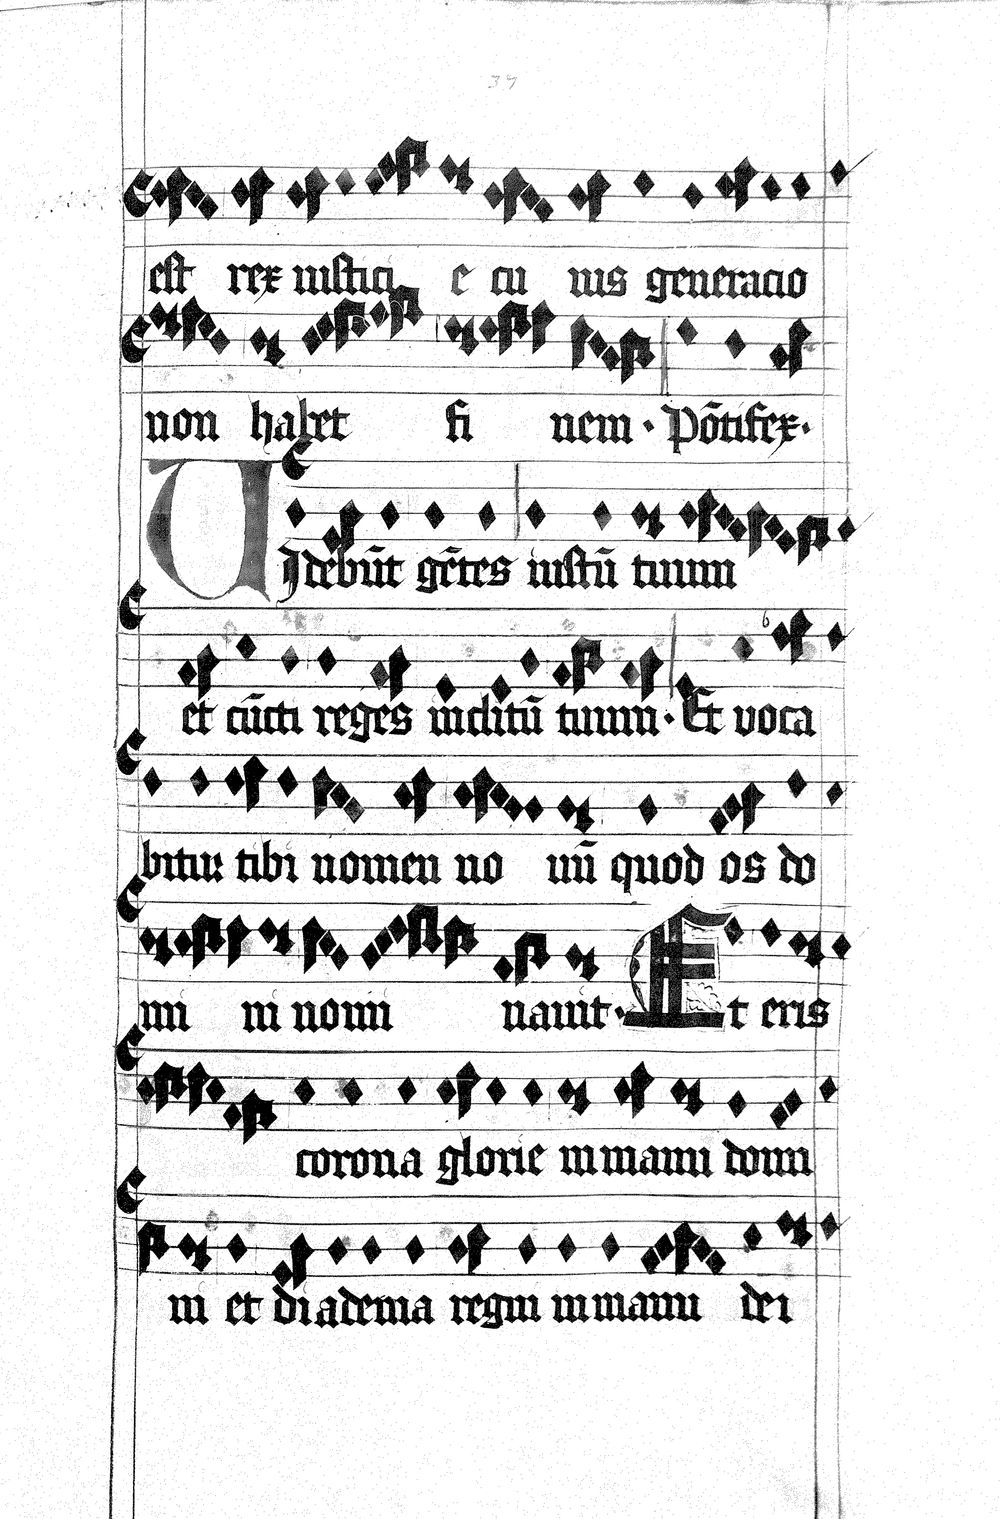 37
est rex iustici e cu ius generacio
non habet fi nem · Põtifex ·
UIdebũt gẽtes iustũ tuum
et cũcti reges inclitũ tuum · Et voca
bitur tibi nomen no uũ quod os do
mi ni nomi nauit · Et eris
corona glorie in manu domi
ni et diadema regni in manu dei